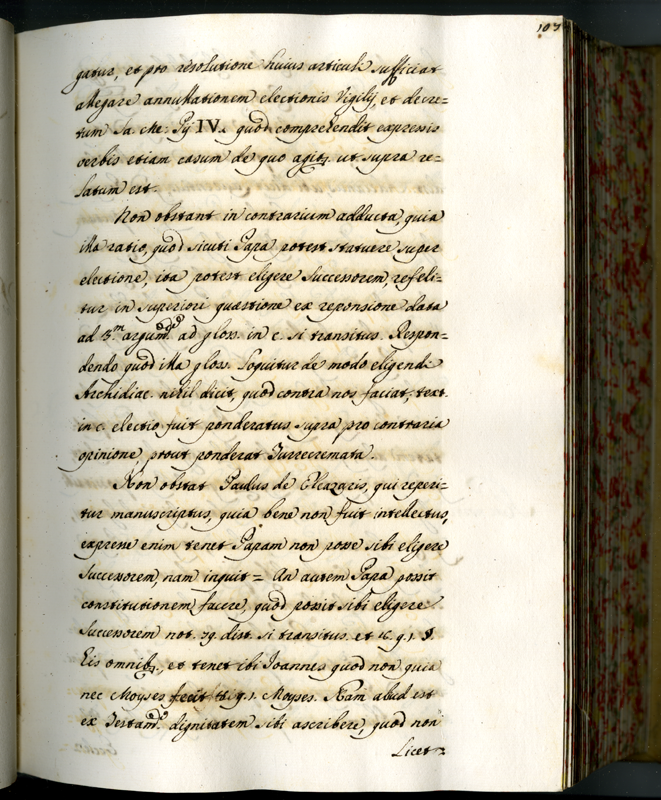 107
gatur, et pro resolutione huius articuli sufficiat
allegare annullationem electionis Vigilij, et decre=
tum fa. me: Pij IV., quod comprehendit expressis
verbis etiam casum de quo agitr. ut supra re=
latum est.
Non obstant in contrarium adducta, quia
illa ratio, quod sicuti Papa potest statuere super
electione, ita potest eligere Successorem, refelli=
tur in superiori quaestione ex reponsione data
ad 3.m argum. ad gloss. in c. si transitus. Respon=
dendo quod illa gloss. loquitur de modo eligendi
Archidiac. nihil dicit, quod contra nos faciat, text.
in c. electio fuit ponderatus supra pro contraria
opinione, prout ponderat Turrecremata.
Non obstat Paulus de Eleazaris, qui reperi=
tur manuscriptus, quia bene non fuit intellectus,
expresse enim tenet Papam non posse sibi eligere
Successorem, nam inquit = An autem Papa possit
constitutionem facere, quod possit sibi eligere
Successorem not. 79. dist. si transitus. et 16. q. 1. §.
His omnib., et tenet ibi Joannes quod non quia
nec Moyses fecit q. 1. Moyses. Nam aliud est
ex Testam. dignitatem sibi ascribere, quod non
Licet=